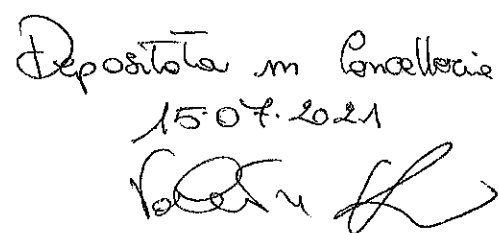 Depositata in Cancelleria
15.07.2021